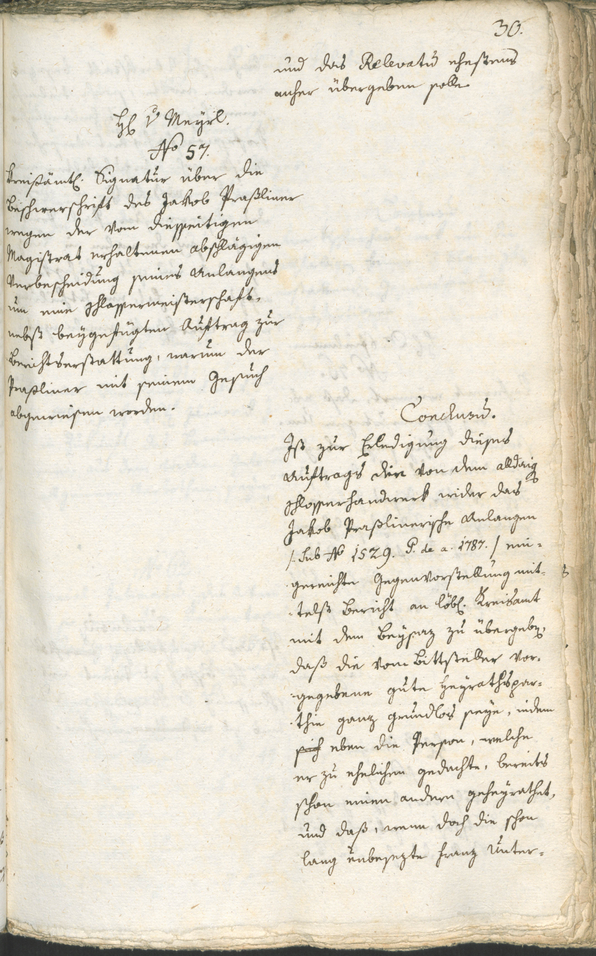 30.
und das Relevatum ehestens
anher übergeben solle.
H: v Meyrl.
No 57.
Kreisämtl. Signatur über die
Beschwerschrift des Jakob Praßliner
wegen der vom diesseitigen
Magistrat erhaltenen abschlägigen
Verbescheidung seines Anlangens
um eine Schlossermeisterschaft,
nebst beygefügten Auftrag zur
Berichtserstattung, warum der
Praßliner mit seinem Gesuch
abgewiesen worden.
Conclusum.
Ist zur Erledigung dieses
Auftrags die von dem alldaig
Schlosserhandwerk wider das
Jakob Praßlinerische Anlangen
/: Sub No 1529. P. de a. 1787. / ein-
gereichte Gegenvorstellung mit-
telst Bericht an löbl. Kreisamt
mit dem Beysaz zu übergeben,
daß die vom Bittsteller vor-
gegebene gute Heyrathspar-
thie ganz grundlos seye, indem
sich eben die Person, welche
er zu ehelichen gedachte, bereits
schon einen andern geheyrathet,
und daß, wenn doch die schon
lang unbesezte Franz Unter-